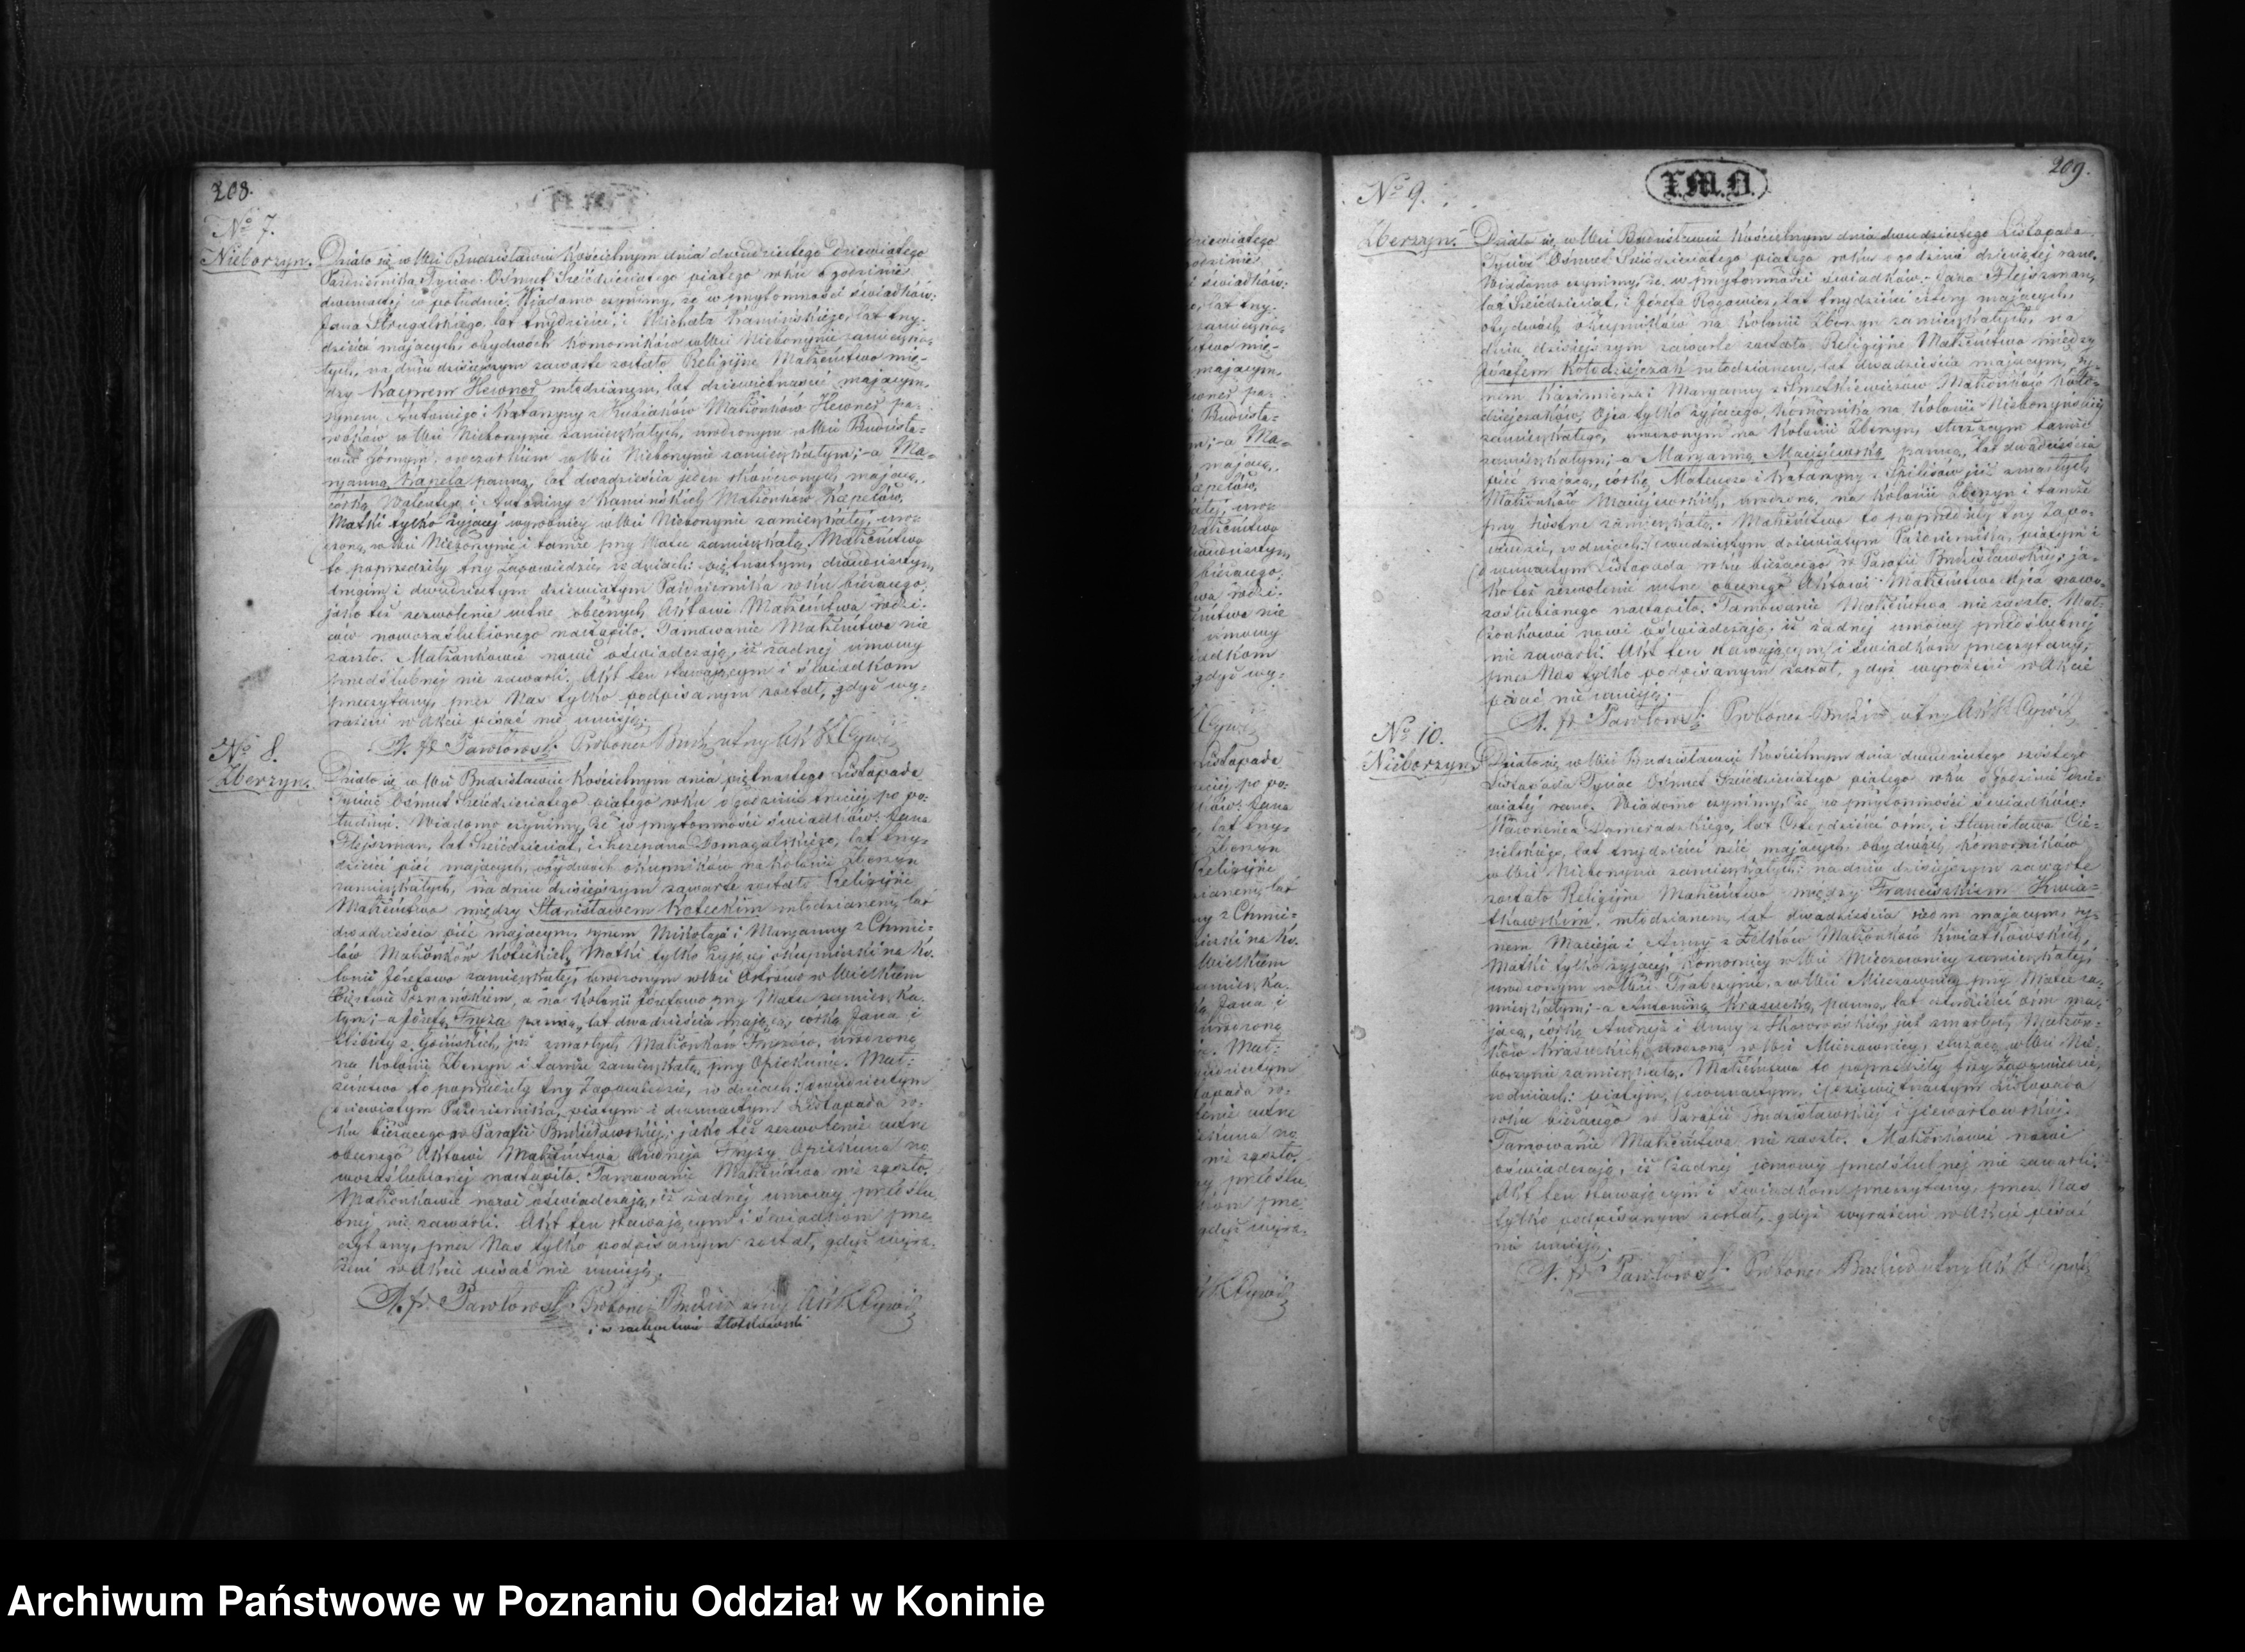 208.
No 7.
Nieborzyn.
Działo się w Wsi Budzisławiu Kościelnym dnia dwudziestego dziewiątego
Października Tysiąc Ośmset Sześćdziesiątego piątego roku o godzinie
dwunastej w południe. Wiadomo czynimy, że w przytomności świadków:
Jana Strugalskiego, lat trzydzieści, i Michała Kamińskiego, lat trzy-
dzieści mających, obydwóch Komorników w Wsi Nieborzynie zamieszka-
łych, na dniu dzisiejszym zawarte zostało Religijne Małżeństwo mię-
dzy Kacprem Hewner młodzianem, lat dziewiętnaście mającym,
synem Antoniego i Katarzyny z Kubiaków Małżonków Hewner pa-
robków w Wsi Nieborzynie zamieszkałych, urodzonym w Wsi Budzisła-
wiu Górnym, owczarkiem w Wsi Nieborzynie zamieszkałym; a Ma-
ryanną Kapela panną, lat dwadzieścia jeden skończonych mającą,
córką Walentego i Antoniny z Kamińskich Małżonków Kapelów,
Matki tylko żyjącej wyrobnicy w Wsi Nieborzynie zamieszkałej, uro-
dzoną w Wsi Nieborzynie i tamże przy Matce zamieszkałą. Małżeństwo
to poprzedziły trzy Zapowiedzie, w dniach: piętnastym, dwudziestym
drugim i dwudziestym dziewiątym Października roku bieżącego,
jako też zezwolenie ustne obecnych Aktowi Małżeństwa rodzi-
ców nowozaślubionego nastąpiło. Tamowanie Małżeństwa nie
zaszło. Małżonkowie nowi oświadczają, iż żadnej umowy
przedślubnej nie zawarli. Akt ten stawającym i świadkom
przeczytany, przez Nas tylko podpisanym został, gdyż wy-
rażeni w Akcie pisać nie umieją.
X. Pawłowski Proboszcz Budzis utrzy Akt St Cywil
No 8.
Zberzyn.
Działo się w Wsi Budzisławiu Kościelnym dnia piętnastego Listopada
Tysiąc Ośmset Sześćdziesiątego piątego roku o godzinie trzeciej po po-
łudniu. Wiadomo czynimy, że w przytomności świadków: Jana
Flejszman, lat Sześćdziesiąt, i Szczepana Domagalskiego, lat trzy-
dzieści pięć mających, obydwóch okupników na Kolonii Zberzyn
zamieszkałych, na dniu dzisiejszym zawarte zostało Religijne
Małżeństwo między Stanisławem Koteckim młodzianem, lat
dwadzieścia pięć mającym, synem Mikołaja i Maryanny z Chmie-
lów Małżonków Koteckich, Matki tylko żyjącej okupniczki na Ko-
lonii Józefowo zamieszkałej, urodzonym w Wsi w Wielkiém
Xięstwie Poznańskiém, a na Kolonii Józefowo przy Matce zamieszka-
łym; a Józefą Fryza panną, lat dwadzieścia mającą, córką Jana i
Elżbiety z Gościńskich, już zmarłych Małżonków Fryzów, urodzoną
na Kolonii Zberzyn i tamże zamieszkałą, przy Opiekunie. Mał-
żeństwo to poprzedziły trzy Zapowiedzie, w dniach: dwudziestym
dziewiątym Października, piątym i dwunastym Listopada ro-
ku bieżącego w Parafii Budzisławskiej; jako też zezwolenie ustne
obecnego Aktowi Małżeństwa Andrzeja Fryzy Opiekuna no-
wozaślubionej nastąpiło. Tamowanie Małżeństwa nie zaszło.
Małżonkowie nowi oświadczają, iż żadnej umowy przedślu-
bnej nie zawarli. Akt ten stawającym i świadkom prze-
czytany, przez Nas tylko podpisanym został, gdyż wyra-
żeni w Akcie pisać nie umieją.
X. Pawłowski Proboszcz Budzis utrzy Akt St Cywil
209.
No 9.
Zberzyn.
Działo się w Wsi Budzisławiu Kościelnym dnia dwudziestego Listopada
Tysiąc Ośmset Sześćdziesiątego piątego roku o godzinie dziesiątej rano.
Wiadomo czynimy, że w przytomności świadków: Jana Flejszman,
lat Sześćdziesiąt, i Józefa Rogowicz, lat trzydzieści cztery mających,
obydwóch okupników na Kolonii Zberzyn zamieszkałych, na
dniu dzisiejszym zawarte zostało Religijne Małżeństwo między
Józefem Kołodziejczak młodzianem, lat dwadzieścia mającym, sy-
nem Kazimierza i Maryanny z Smętkiewiczów Małżonków Koło-
dziejczaków, Ojca tylko żyjącego Komornika na Kolonii Nieborzyńskiej
zamieszkałego, urodzonym na Kolonii Zberzyn, służącym tamże
zamieszkałym; a Maryanną Maciejewską panną, lat dwadzieścia
pięć mającą, córką Mateusza i Katarzyny z już zmarłych
Małżonków Maciejewskich, urodzoną na Kolonii Zberzyn i tamże
przy Siostrze zamieszkałą. Małżeństwo to poprzedziły trzy Zapo-
wiedzie, w dniach: dwudziestym dziewiątym Października, piątym i
dwunastym Listopada roku bieżącego w Parafii Budzisławskiej; ja-
ko też zezwolenie ustne obecnego Aktowi Małżeństwa Ojca nowo-
zaślubionego nastąpiło. Tamowanie Małżeństwa nie zaszło. Mał-
żonkowie nowi oświadczają, iż żadnej umowy przedślubnej
nie zawarli. Akt ten stawającym i świadkom przeczytany,
przez Nas tylko podpisanym został, gdyż wyrażeni w Akcie
pisać nie umieją.
X. Pawłowski Proboszcz Budzis utrzy Akt St Cywil
No 10.
Nieborzyn.
Działo się w Wsi Budzisławiu Kościelnym dnia dwudziestego szóstego
Listopada Tysiąc Ośmset Sześćdziesiątego piątego roku o godzinie dzie-
wiątej rano. Wiadomo czynimy, że w przytomności świadków:
Wawrzeńca Domeradzkiego, lat Czterdzieści ośm, i Stanisława Cie-
sielskiego, lat trzydzieści pięć mających, obydwóch komorników
w Wsi Nieborzynie zamieszkałych; na dniu dzisiejszym zawarte
zostało Religijne Małżeństwo między Franciszkiem Kwia-
tkowskim, młodzianem, lat dwadzieścia siedm mającym, sy-
nem Macieja i Anny z Małżonków Kwiatkowskich,
Matki tylko żyjącej, Komornicy w Wsi Mieczownicy zamieszkałej,
urodzonym w Wsi a w Wsi Mieczownicy przy Matce za-
mieszkałym; a Antoniną Krasucką, panną, lat czterdzieści ośm ma-
jącą, córką Andrzeja i Anny z Skoworońskich, już zmarłych Małżon-
ków Krasuckich, urodzoną w Wsi Mieczownicy, służącą w Wsi Nie-
borzynie zamieszkałą. Małżeństwo to poprzedziły trzy Zapowiedzie,
w dniach: piątym, dwunastym, i dziewiętnastym Listopada
roku bieżącego w Parafii Budzisławskiej i
Tamowanie Małżeństwa nie zaszło. Małżonkowie nowi
oświadczają, iż żadnej umowy przedślubnej nie zawarli.
Akt ten stawającym i świadkom przeczytany, przez Nas
tylko podpisanym został, gdyż wyrażeni w Akcie pisać
nie umieją.
X. Pawłowski Proboszcz Budzis utrzy Akt St Cywil
Archiwum Państwowe w Poznaniu Oddział w Koninie